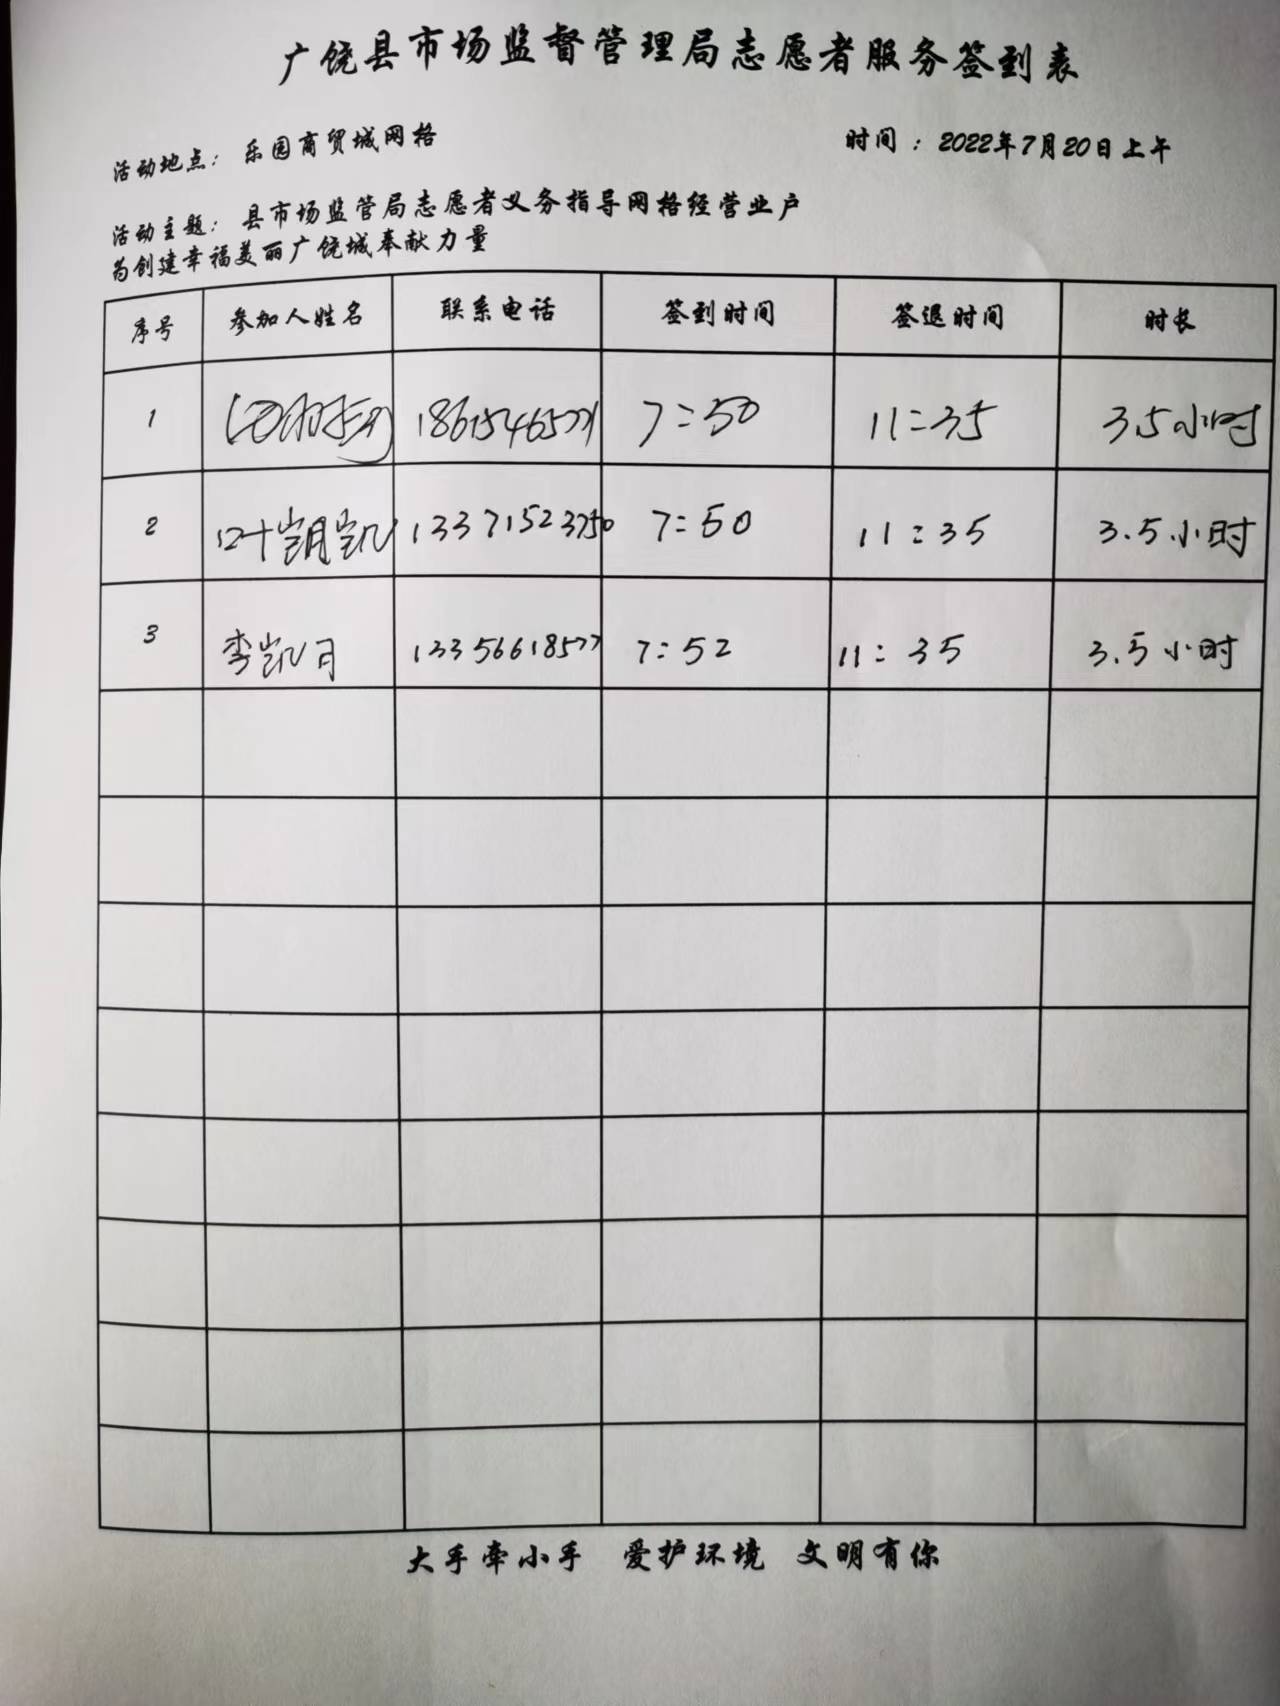 广饶县市场监督管理局志愿者服务签到表
活动地点：乐园商贸城网格 时间：2022年7月20日上午
活动主题：县市场监管局志愿者义务指导网格经营业户
为创建幸福美丽广饶城奉献力量
序号 参加人姓名 联系电话 签到时间 签退时间 时长
1 7:50 11:35 3.5小时
2 13371523750 7:50 11:35 3.5小时
3 李凯月 13356618577 7:52 11:35 3.5小时
大手牵小手 爱护环境 文明有你